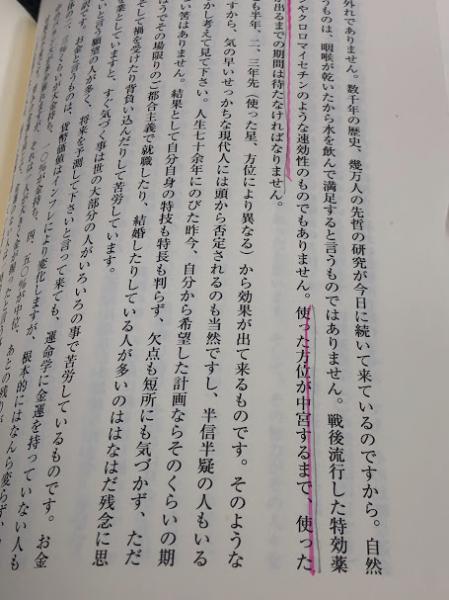 外れでありません。数千年の歴史、幾万人の先哲の研究が今日に続いて来ているのですから。自然
うものは、咽喉が乾いたから水を飲んで満足すると言うものではありません。戦後流行した特効薬
ンやクロロマイセチンのような速効性のものでもありません。使った方位が中宮するまで、使った
出るまでの期間は待たなければなりません。
も半年、二、三年先(使った星、方位により異なる)から効果が出て来るものです。そのような
すから、気の早いせっかちな現代人には頭から否定されるのも当然ですし、半信半疑の人もいる
かし考えて見て下さい。人生七十余年にのびた昨今、自分から希望した計画ならそのくらいの期
い筈はありません。結果として自分自身の特技も特長も判らず、欠点も短所にも気づかず、ただ
ほうでその場限りのご都合主義で就職したり、結婚したりしている人が多いのははなはだ残念に思
そして禍を受けたり背負い込んだりして苦労しています。
を業としていますと、すぐ気づく事は世の大部分の人がいろいろの事で苦労しているものです。お金
いと言う願望の人が多く、将来を予測して下さいと言って来ても、運命学に金運を持っていない人も
訳です。お金と言うものは、貨幣価値はインフレにより変化しますが、根本的にはなんら変らず、
％くらいが大金持ち、一〇％が金持ち、四、五〇％が中位、あとの残りが